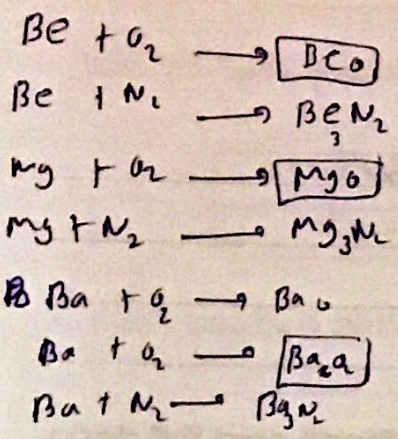 Be + O₂ ⟶ BeO
Be + N₂ ⟶ Be₃N₂
Mg + O₂ ⟶ MgO
Mg + N₂ ⟶ Mg₃N₂
Ba + O₂ ⟶ BaO
Ba + O₂ ⟶
Ba + N₂ ⟶ Ba₃N₂